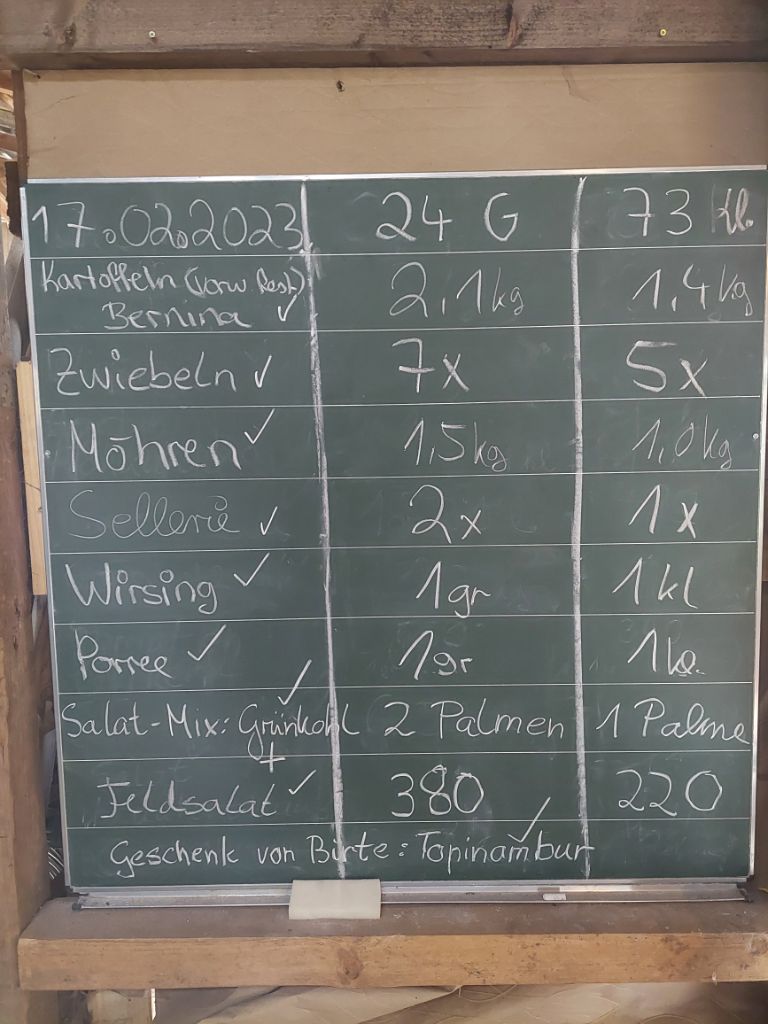 17.02.2023 24 G 73 Kl.
Kartoffeln (vorw. Rest)
Bernina ✓ 2,1kg 1,4kg
Zwiebeln ✓ 7x 5x
Möhren ✓ 1,5kg 1,0kg
Sellerie ✓ 2x 1x
Wirsing ✓ 1gr 1kl
Porree ✓ 1gr 1kl.
Salat-Mix: Grünkohl ✓ 2 Palmen 1 Palme
+
Feldsalat ✓ 380 220
Geschenk von Birte: Topinambur ✓